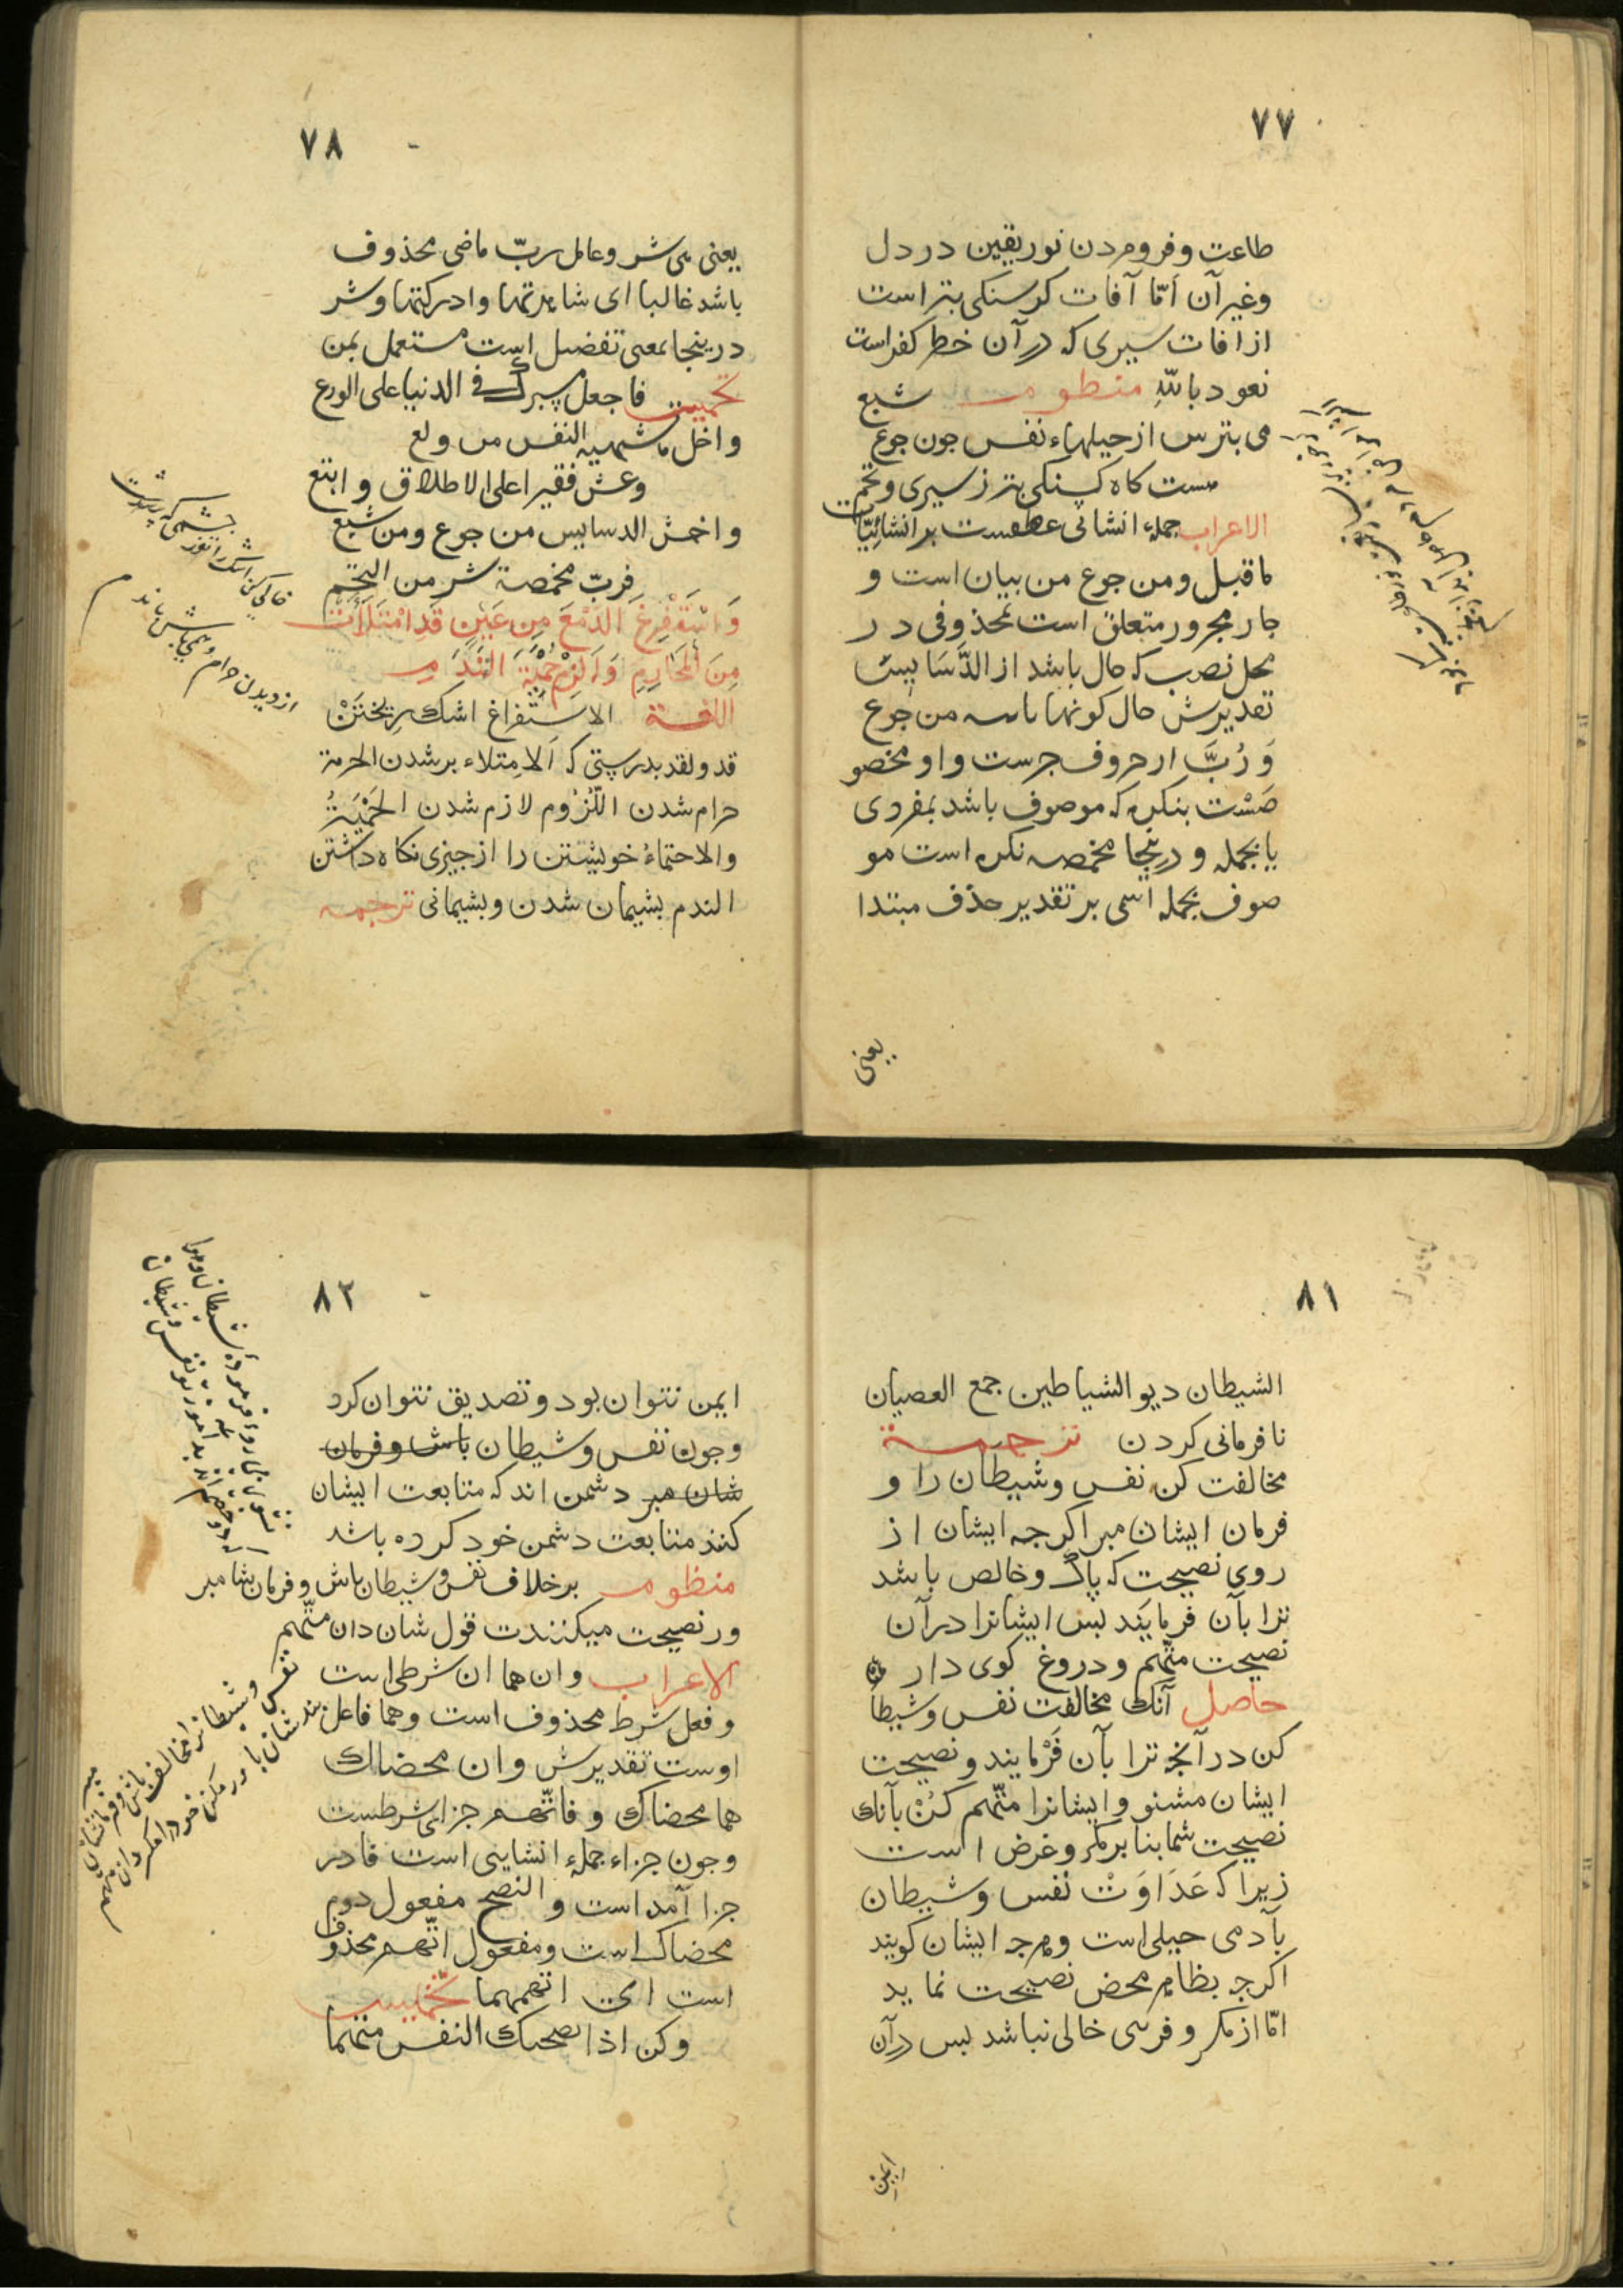 ٧٧
طاعت وفرومردن نوریقین در دل
وغیر آن اَمّا آفات کرسنکی بتر است
از افات سیری که در آن خطر کفر است
نعود باللهِ منظومه شبع
می بترس از حیلهاء نفس جون جوع
هست کاه کرسنکی بتر ز سیری وتخم
الاعراب جملهء انشائی عطفست بر انشائیّات
ماقبل ومن جوع من بیان است و
جار مجرور متعلق است بمحذوفی در
محل نصب که حال باشد از الدَّسَایِسَ
تقدیرش حال کونها من جوع
وَ رُبَّ از حروف جرست واو مخصو
صَسْت بنکره که موصوف باشد بمفردی
یا بجمله و درینجا مخمصه نکره است مو
صوف بجمله اسمی بر تقدیر حذف مبتدا
یعنی
٧٨
یعنی هی شر وعامل ربّ ماضی محذوف
باشد غالبا ای شاهدتها وادرکتها وشر
درینجا بمعنی تفضیل است مستعمل بمن
تخمیس فاجعل مسیرک فی الدنیا علی الورع
واخل ما تشتهیه النفس من ولع
وعش فقیرا علی الاطلاق وابتع
واخش الدسایس من جوع ومن شبع
فربّ مخمصة شر من التخم
وَاسْتَفْرِغِ الدَّمْعَ مِن عَیْنٍ قَدِ امْتَلَأَتْ
مِنَ الْمَحَارِمِ وَالْزَمْ حِمْیَةَ النَّدَمِ
اللغة الاستفراغ اشک ریختَنْ
قد ولقد بدرستی که اَلاِمتلاء بر شدن الحرمة
حرام شدن اللُّزُوم لازم شدن الحَمْیَةُ
والاحتماءُ خویشتن را از جیزی نکاه داشتن
الندم بشیمان شدن وبشیمانی ترجمه
خالی کن اشک را
از دیدن حرام
٨١
الشیطان دیو الشیاطین جمع العصیان
نا فرمانی کردن ترجمة
مخالفت کن نفس وشیطان را و
فرمان ایشان مبر اکرجه ایشان از
روی نصیحت که پاک وخالص باشد
ترا بآن فرمایَند بس ایشانرا در آن
نصیحت متّهم ودروغ کوی دار
حاصل آنک مخالفت نفس وشیطا
کن در آنجه ترا بآن فَرْمایند ونصیحت
ایشان مشنو وایشانرا متّهم کُنْ بآنک
نصیحت شما بنا بر مکر وغرض است
زیرا که عَدَاوَتْ نفس وشیطان
بآدمی جبلی است وهرجه ایشان کویند
اکرجه بظاهر محض نصیحت نماید
امّا از مکر وفریبی خالی نباشد بس در آن
ایمن
٨٢
ایمن نتوان بود وتصدیق نتوان کرد
وجون نفس وشیطان باش وفرمان
شان مبر دشمن اند که متابعت ایشان
کنند متابعت دشمن خود کرده باشد
منظومه بر خلاف نفس وشیطان باش وفرمان شا مبر
ور نصیحت میکنندت قول شان دان متّهم
الاعراب وان هما ان شرطی است
وفعل شرط محذوف است وهما فاعل
اوست تقدیرش وان محضاک
هما محضاک وفاتّهم جزای شرطست
وجون جزاء جملهء انشایی است فا در
جزا آمد است والنصح مفعول دوم
محضاک است ومفعول اتّهم محذوف
است ای اتهمهما تخمیس
وکن اذا نصحک النفس متهما
نفس وشیطانرا مخالف باش وفرمانشان مبر